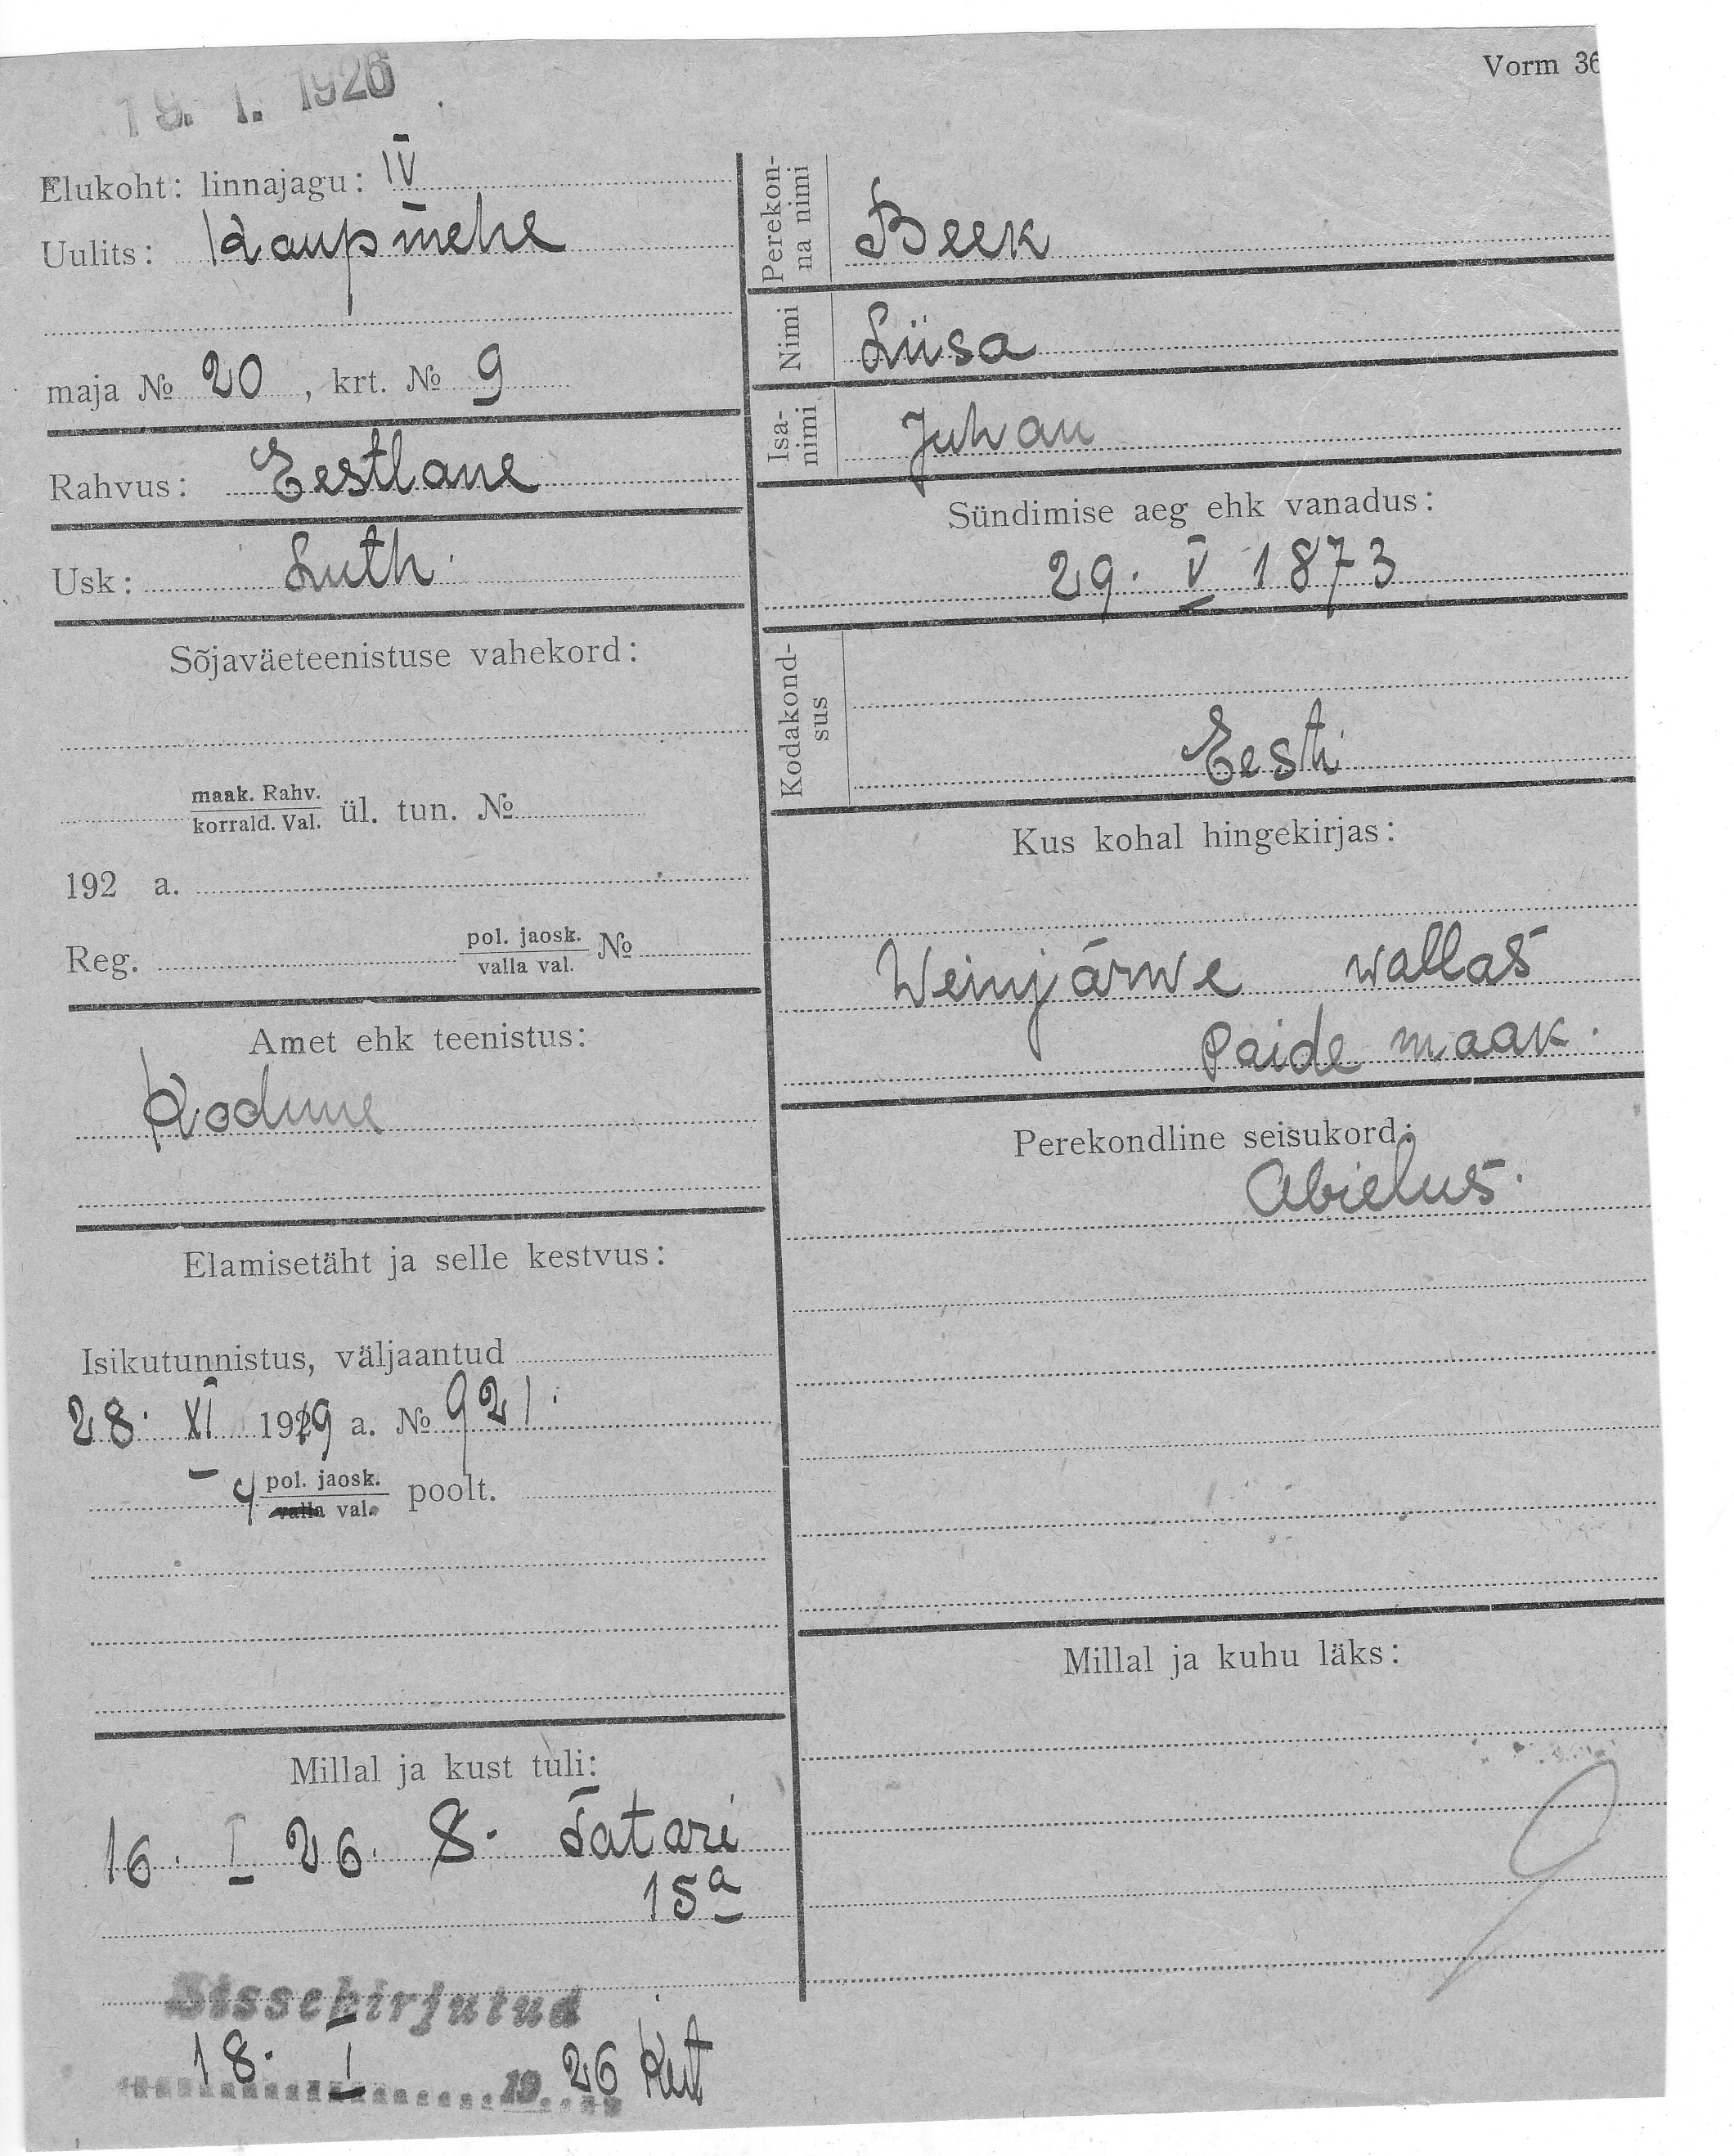 19. I. 1926
Vorm 36
Elukoht: linnajagu: IV
Uulits: Kaupmehe
maja № 20, krt. № 9
Rahvus: Eestlane
Usk: Luth.
Sõjaväeteenistuse vahekord:
maak. Rahv.
korrald. Val. ül. tun. №
192 a.
Reg. pol. jaosk.
valla val. №
Amet ehk teenistus:
Kodune
Elamisetäht ja selle kestvus:
Isikutunnistus, väljaantud
28. XI 1919 a. № 921.
4 pol. jaosk.
valla val. poolt.
Millal ja kust tuli:
16. I 26. S. Tatari
15a
Sissekirjutud
18. I 1926
Perekon-
na nimi Beek
Nimi Liisa
Isa-
nimi Juhan
Sündimise aeg ehk vanadus:
29. V 1873
Kodakond-
sus
Eesti
Kus kohal hingekirjas:
Weinjärwe wallas
Paide maak.
Perekondline seisukord:
Abielus.
Millal ja kuhu läks: